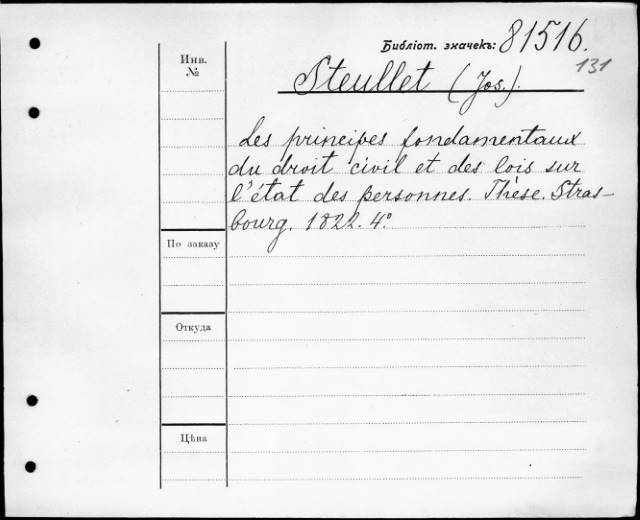 Библіот. значекъ: 81516.
131
Инв.
№
Steullet (Jos.).
Les principes fondamentaux
du droit civil et des lois sur
l'état des personnes. Thèse. Stras-
bourg. 1822. 4°
По заказу
Откуда
Цѣна